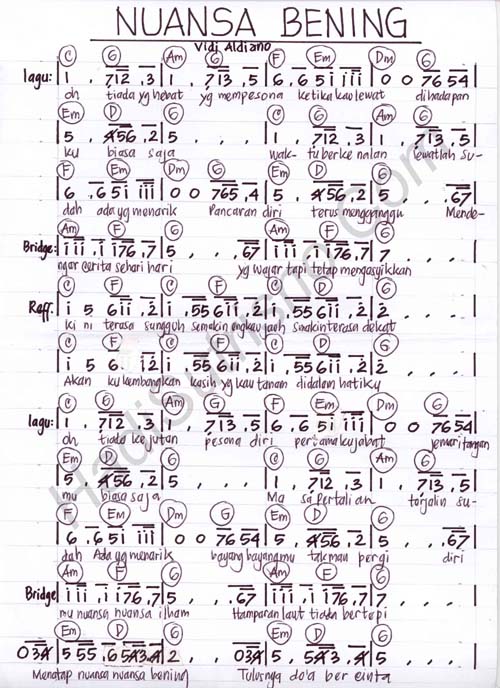 NUANSA BENING
Vidi Aldiano
C G Am G F Em Dm G
lagu: | 1 . 712 .3 | 1 . 713 .5 | 6 .65i iii | 0 0 7654 |
oh tiada yg hebat yg mempesona ketika kau lewat dihadapan
Em D G C G Am G
| 5 . 456 .2 | 5 . . . | 1 . 712 .3 | 1 . 713 .5 |
ku biasa saja wak- tu berkenalan lewatlah su-
F Em Dm G Em D G
| 6 .65i iii | 0 0 765 .4 | 5 . 456 .2 | 5 . . .67 |
dah ada yg menarik Pancaran diri terus mengganggu Mende-
Am F G Am F G
Bridge: | iii .i i76 .7 | 5 . . .67 | iii .i i76 .7 | 7 . . . |
ngar cerita sehari hari yg wajar tapi tetap mengasyikkan
C F C F C D G
Reff. | i 5 6ii .2 | i .55 6ii .2 | i .55 6ii .2 | 2 . . . |
ki ni terasa sungguh semakin engkau jauh smakin terasa dekat
C F C F C D G
| i 5 6. i2 | i .55 6ii .2 | i .55 6ii .2 | 2 . . . |
Akan ku kembangkan kasih yg kau tanam didalam hatiku
C G Am G F Em Dm G
lagu: | 1 . 712 .3 | 1 . 713 .5 | 6 .65i iii | 0 0 7654 |
oh tiada kejutan pesona diri pertama kujabat jemari tangan
Em D G C G Am G
| 5 . 456 .2 | 5 . . . | 1 . 712 .3 | 1 . 713 .5 |
mu biasa saja Ma sa pertalian terjalin su-
F Em Dm G Em D G
| 6 .65i iii | 0 0 7654 | 5 . 456 .2 | 5 . . .67 |
dah Ada yg menarik bayang bayangmu tak mau pergi diri
Am F G Am F G
Bridge | iii .i i76 .7 | 5 . . .67 | iii .i i76 .7 | 7 . . . |
mu nuansa nuansa ilham Hamparan laut tiada bertepi
Em D G Em D G
034 | 555 .6543.4 | 2 . . 034 | 5 . 543 .4 | 5 . . . |
Menatap nuansa nuansa bening Tulusnya doa ber cinta
HadiSumoro.com